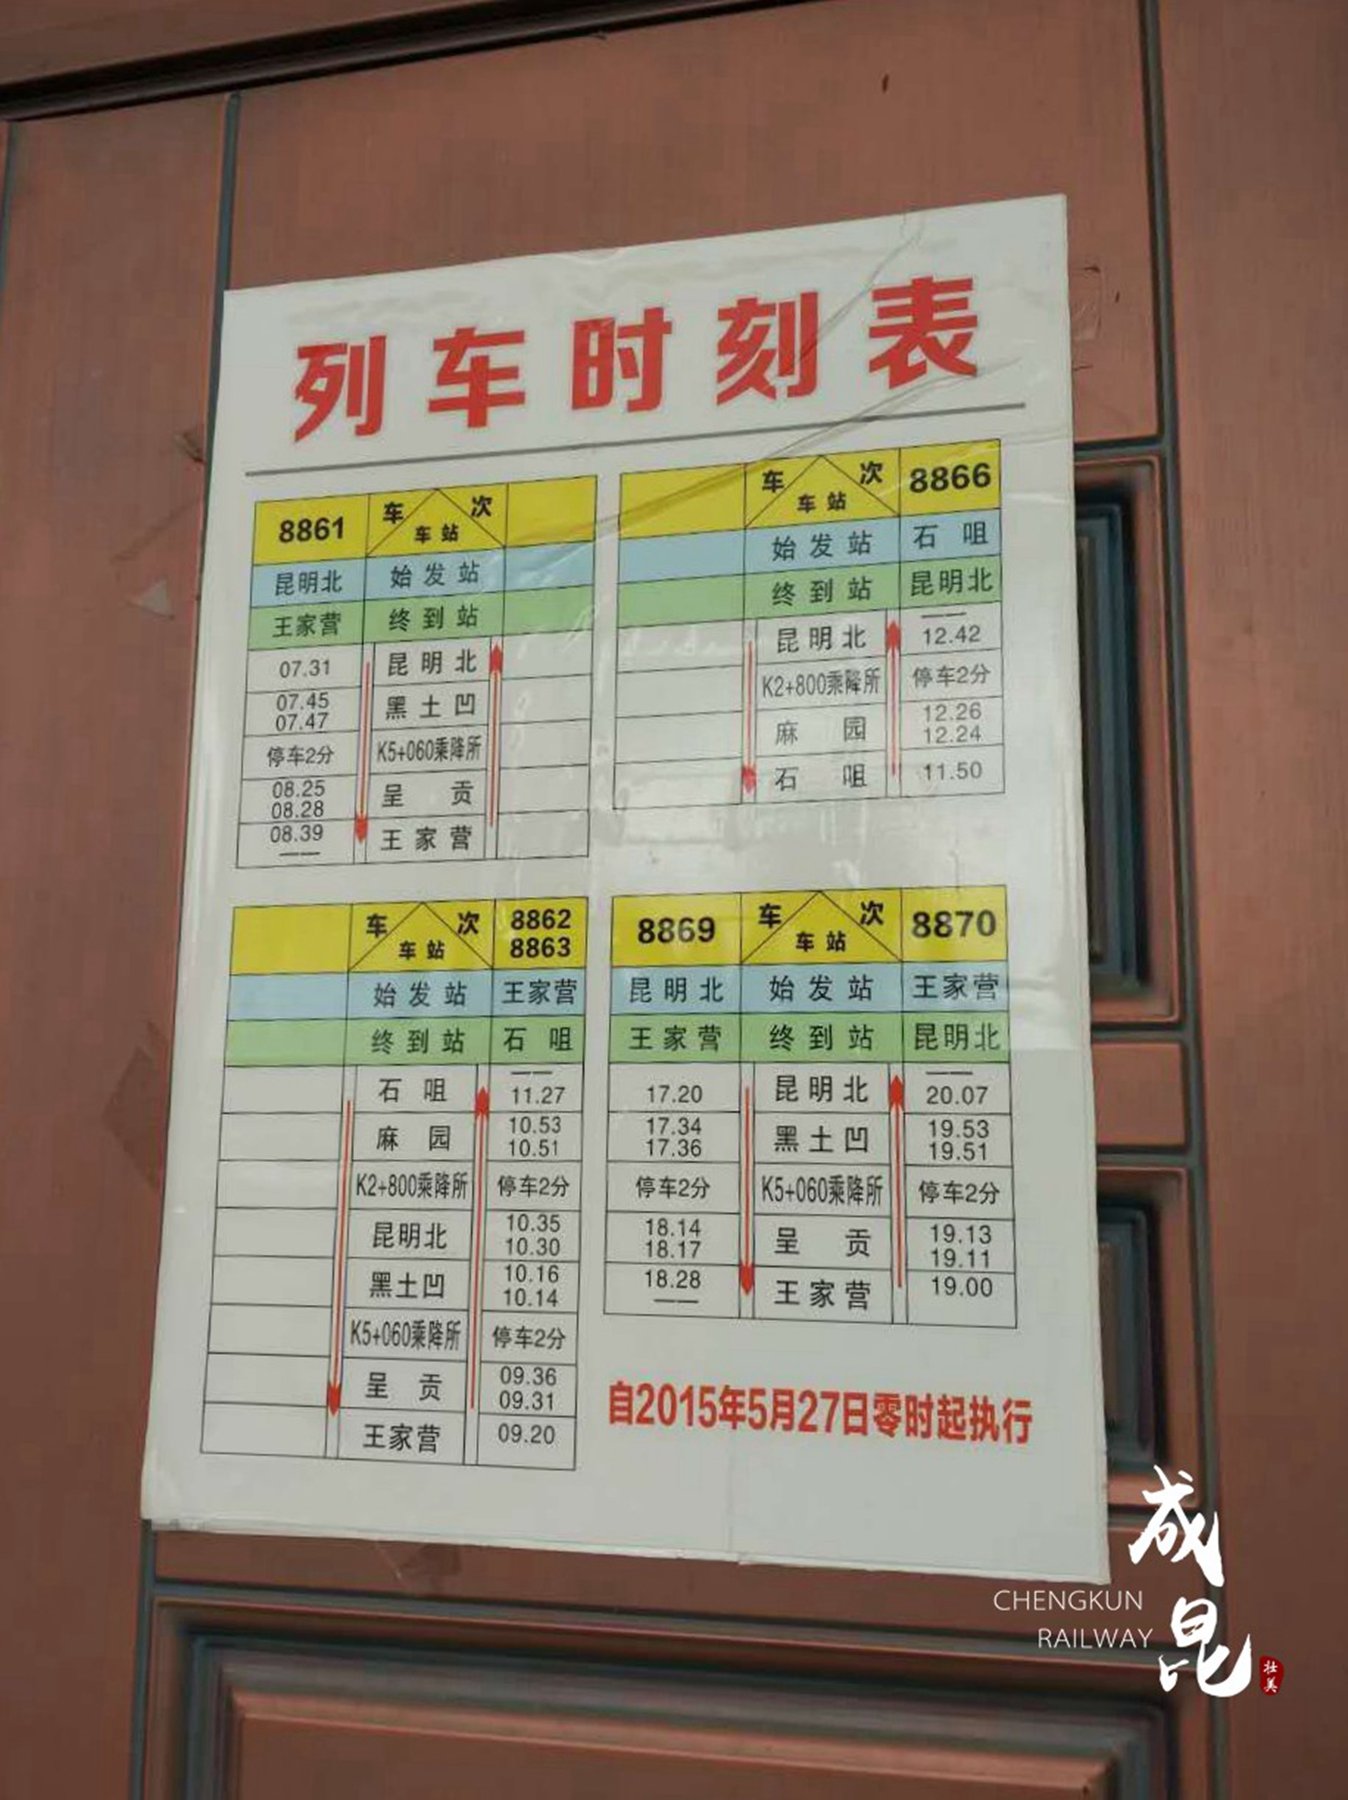 列车时刻表
8861 车次 车站
昆明北 始发站
王家营 终到站
07.31 昆明北
07.45 07.47 黑土凹
停车2分 K5+060乘降所
08.25 08.28 呈贡
08.39 —— 王家营
车次 车站 8866
始发站 石咀
终到站 昆明北
昆明北 —— 12.42
K2+800乘降所 停车2分
麻园 12.26 12.24
石咀 11.50
车次 车站 8862 8863
始发站 王家营
终到站 石咀
石咀 —— 11.27
麻园 10.53 10.51
K2+800乘降所 停车2分
昆明北 10.35 10.30
黑土凹 10.16 10.14
K5+060乘降所 停车2分
呈贡 09.36 09.31
王家营 09.20
8869 车次 车站 8870
昆明北 始发站 王家营
王家营 终到站 昆明北
17.20 昆明北 —— 20.07
17.34 17.36 黑土凹 19.53 19.51
停车2分 K5+060乘降所 停车2分
18.14 18.17 呈贡 19.13 19.11
18.28 —— 王家营 19.00
自2015年5月27日零时起执行
成昆
CHENGKUN
RAILWAY
壮美